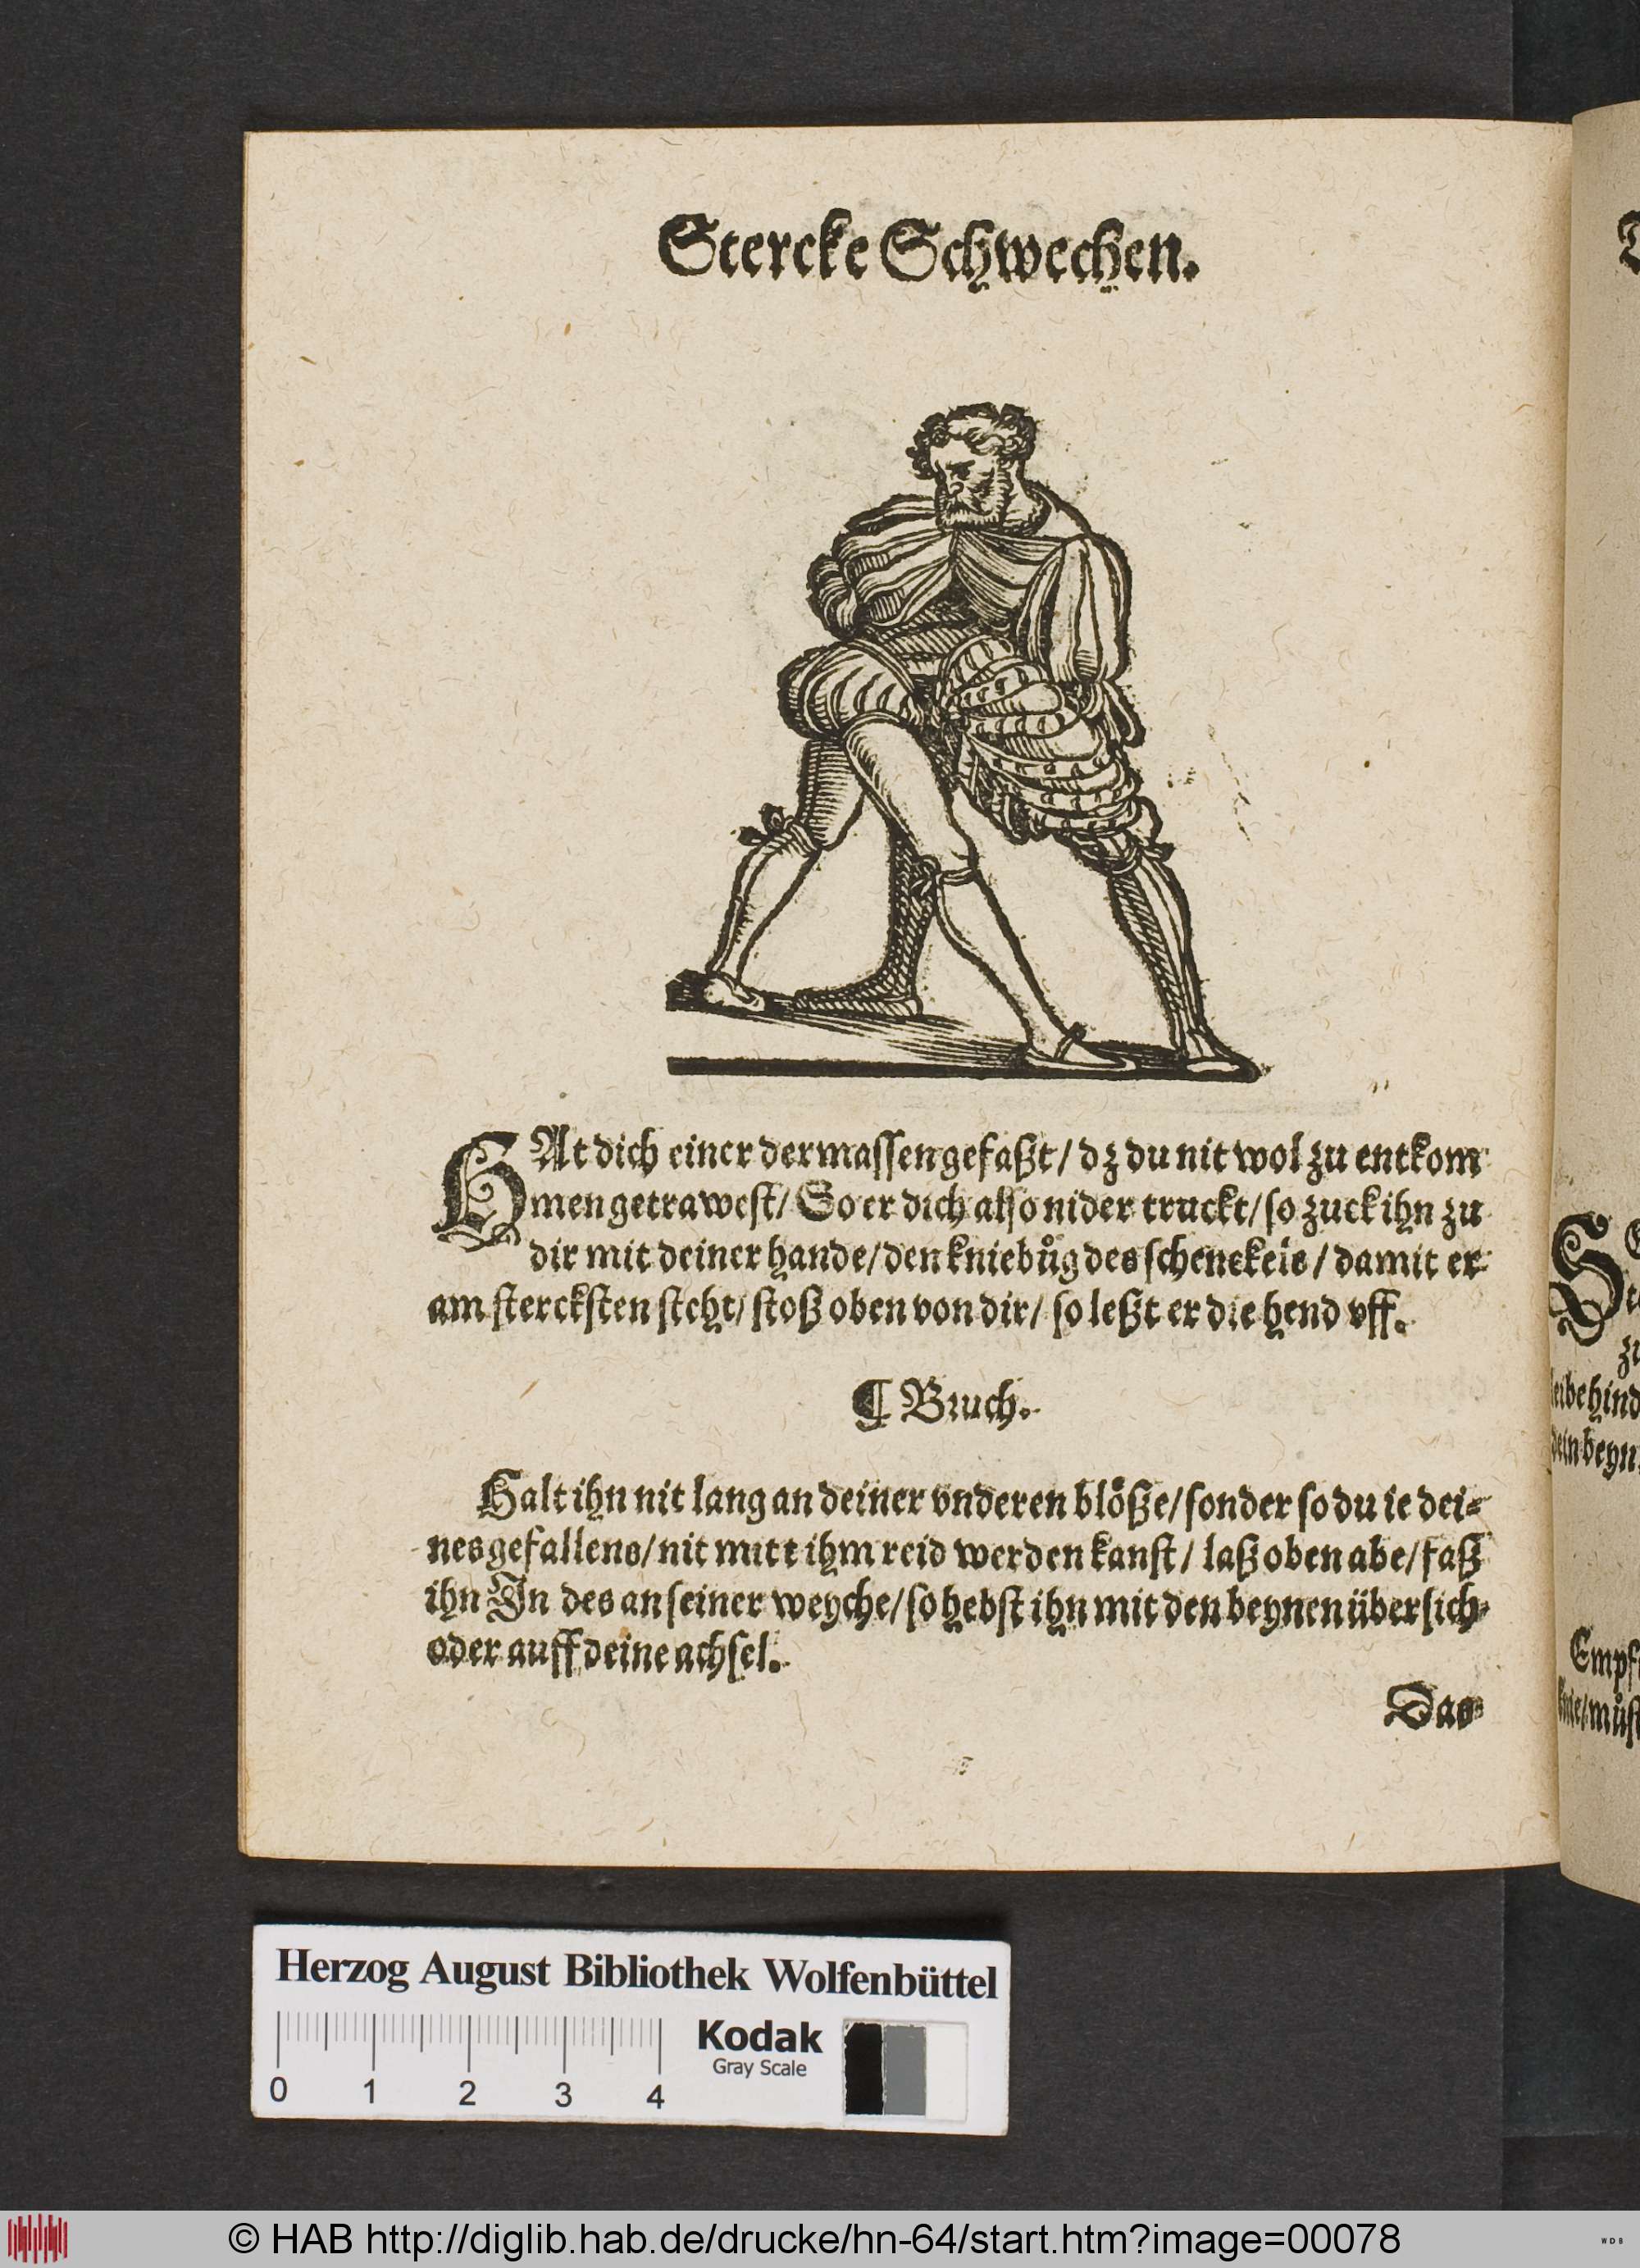 Stercke Schwechen.
HAt dich einer dermassen gefaßt / dz du nit wol zu entkom
men getrawest / So er dich also nider truckt / so zuck ihn zu
dir mit deiner hande / den kniebůg des schenckels / damit er
am stercksten steht / stoß oben von dir / so leßt er die hend vff.
¶ Bruch.
Halt ihn nit lang an deiner vnderen blöße / sonder so du ie dei⸗
nes gefallens / nit mitt ihm reid werden kanst / laß oben abe / faß
ihn In des an seiner weyche / so hebst ihn mit den beynen übersich
oder auff deine achsel.
Das
zu
behind
dein beyn
Empf
knie / můst
Herzog August Bibliothek Wolfenbüttel
Kodak
Gray Scale
0 1 2 3 4
© HAB http://diglib.hab.de/drucke/hn-64/start.htm?image=00078
WDB